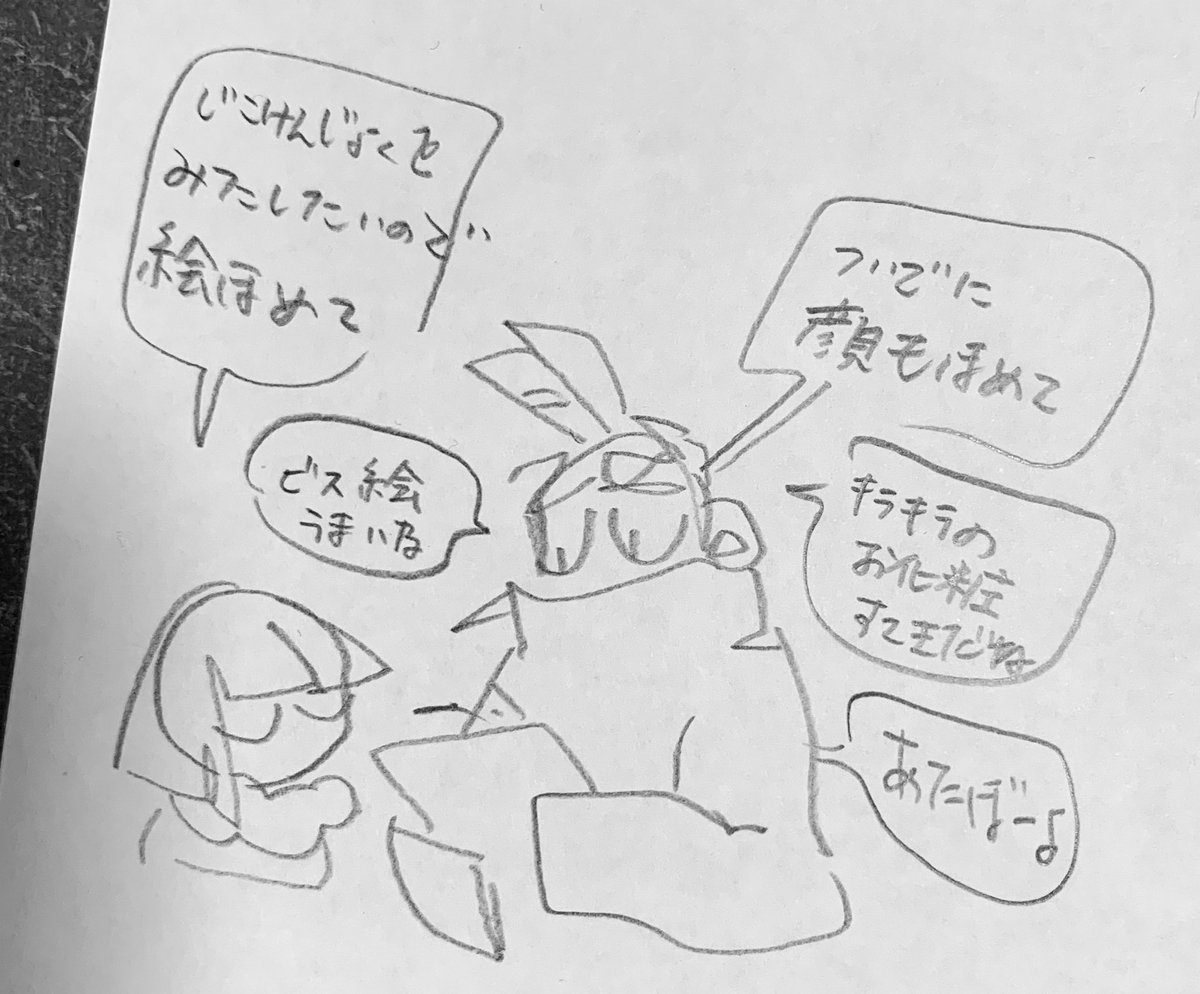 じこけんじょくを
みたしたいので
絵ほめて
ビス絵
うまいな
ついでに
顔もほめて
キラキラの
お化粧
すてきだね
あたぼーよ